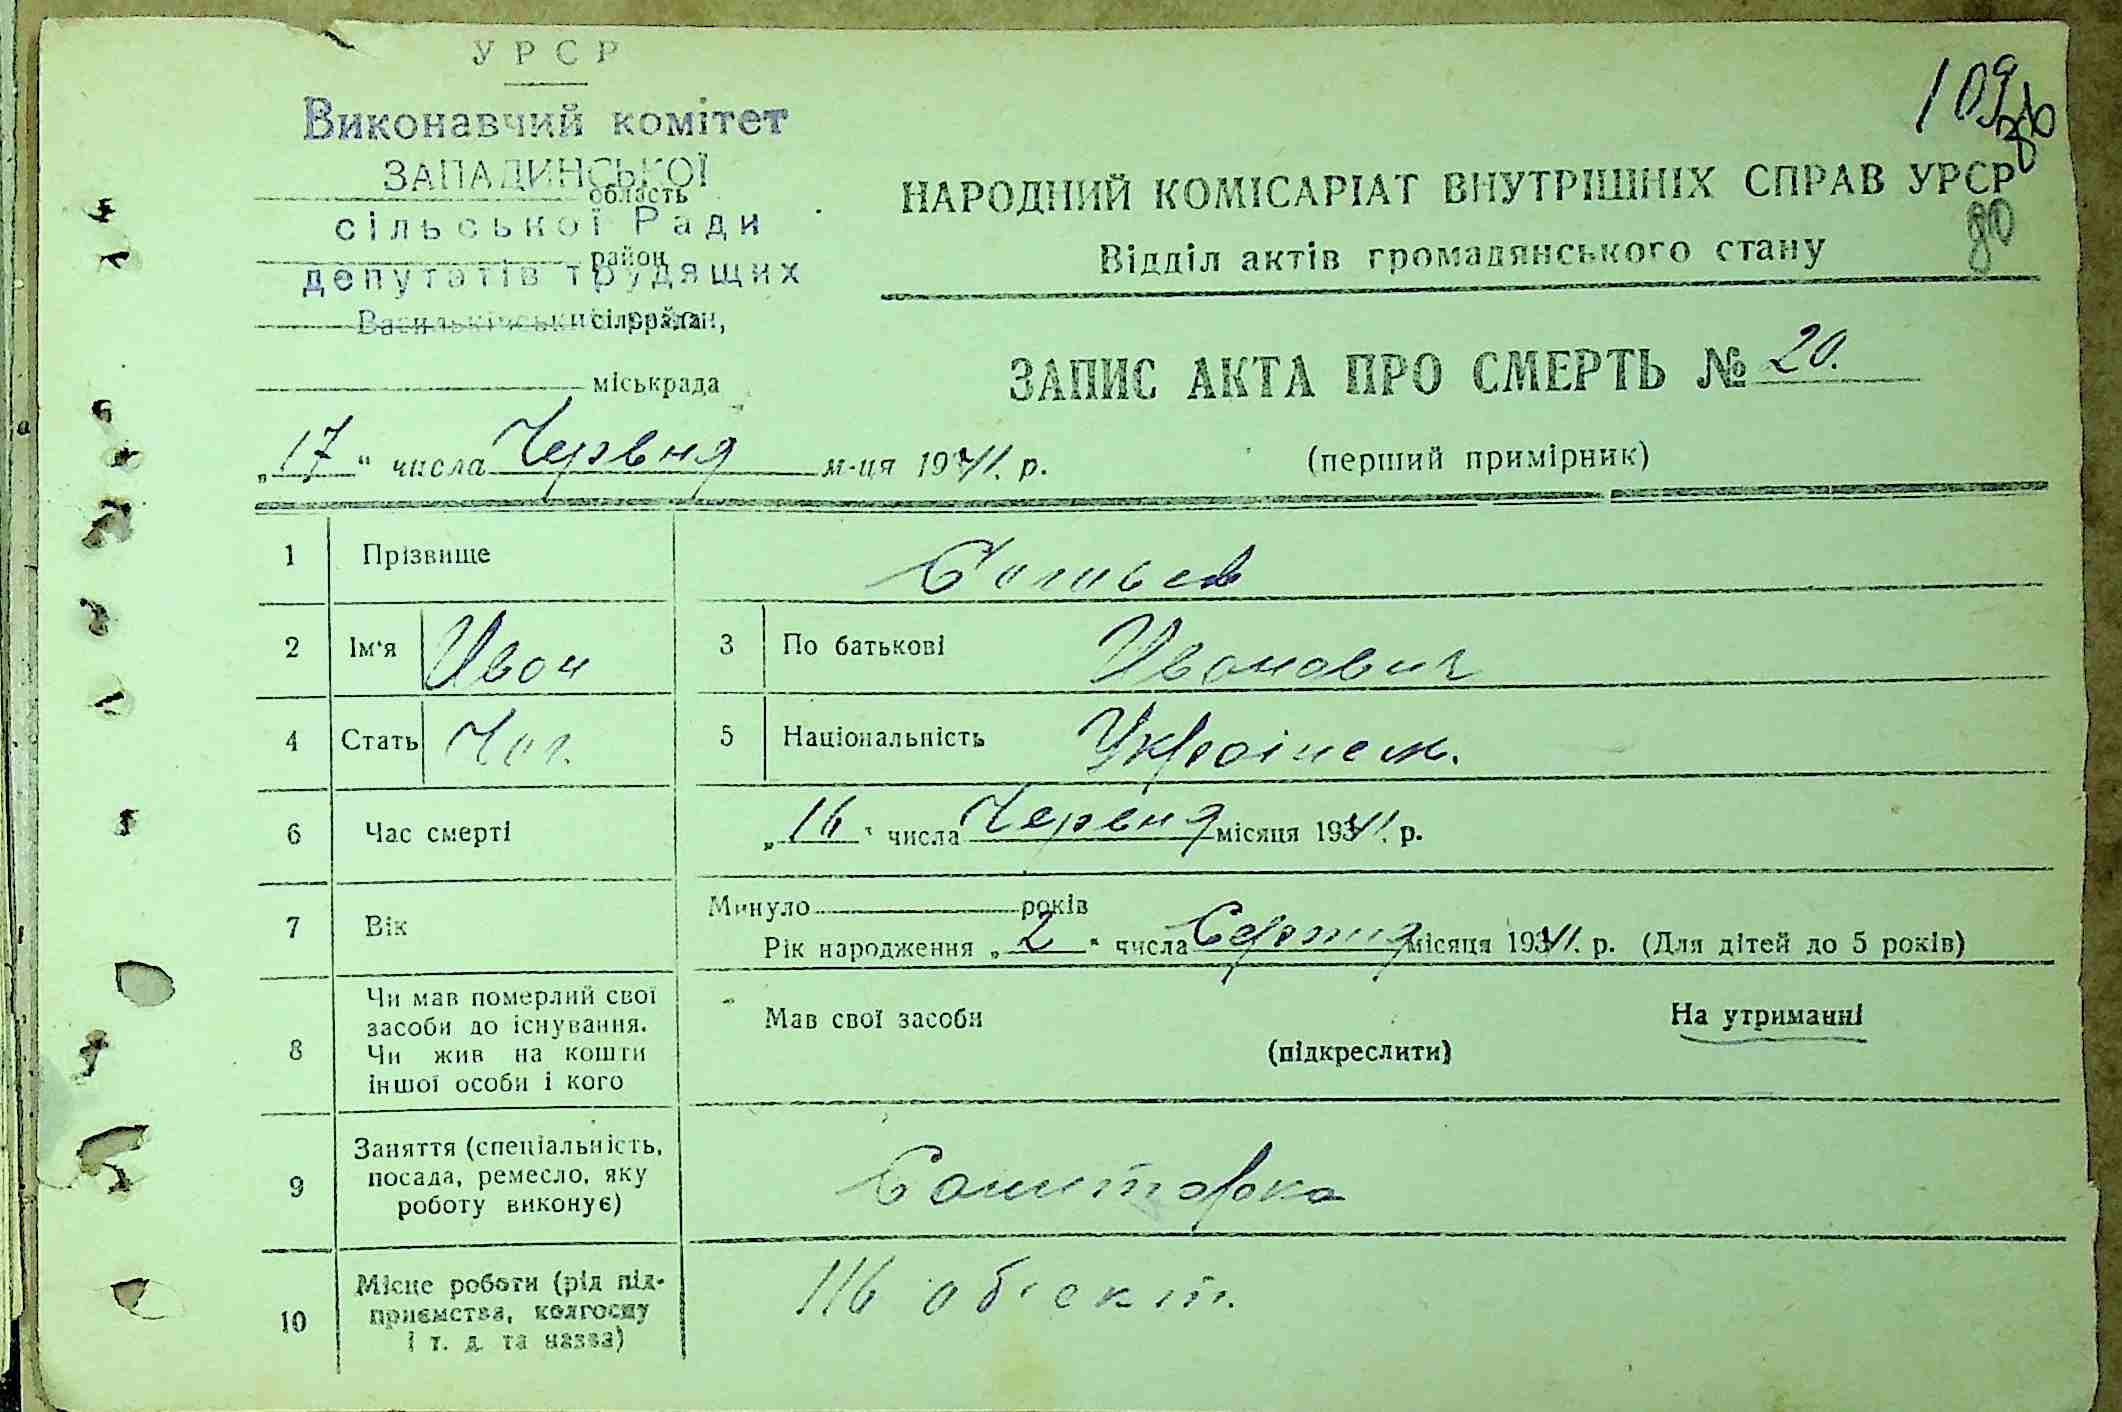 УРСР
Виконавчий комітет
ЗАПАДИНСЬКОЇ
область
сільської Ради
район
депутатів трудящих
сілррада
міськрада
109
80
НАРОДНИЙ КОМІСАРІАТ ВНУТРІШНІХ СПРАВ УРСР
Відділ актів громадянського стану
ЗАПИС АКТА ПРО СМЕРТЬ № 20.
„17“ числа Червня м-ця 1941. р.
(перший примірник)
1 Прізвище
2 Ім'я Иван 3 По батькові Иванович
4 Стать Чол. 5 Національність Украінец.
6 Час смерті „16“ числа Червня місяця 1941. р.
7 Вік Минуло років
Рік народження „2“ числа Серпня місяця 1941. р. (Для дітей до 5 років)
8 Чи мав померлий свої засоби до існування. Чи жив на кошти іншої особи і кого
Мав свої засоби На утриманні
(підкреслити)
9 Заняття (спеціальність, посада, ремесло, яку роботу виконує) Санитарка
10 Місце роботи (рід підприємства, колгоспу і т. д. та назва) 116 об'єкт.